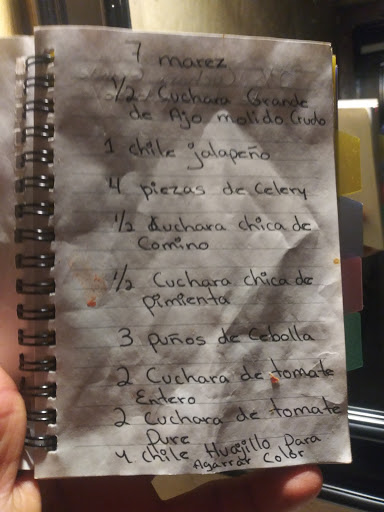 7 marez
1/2 Cuchara Grande
de Ajo molido Crudo
1 chile jalapeño
4 piezas de Celery
1/2 Cuchara chica de
Comino
1/2 Cuchara chica de
pimienta
3 puños de Cebolla
2 Cuchara de tomate
Entero
2 Cuchara de tomate
Pure
4 chile Huajillo Para
Agarrar Color